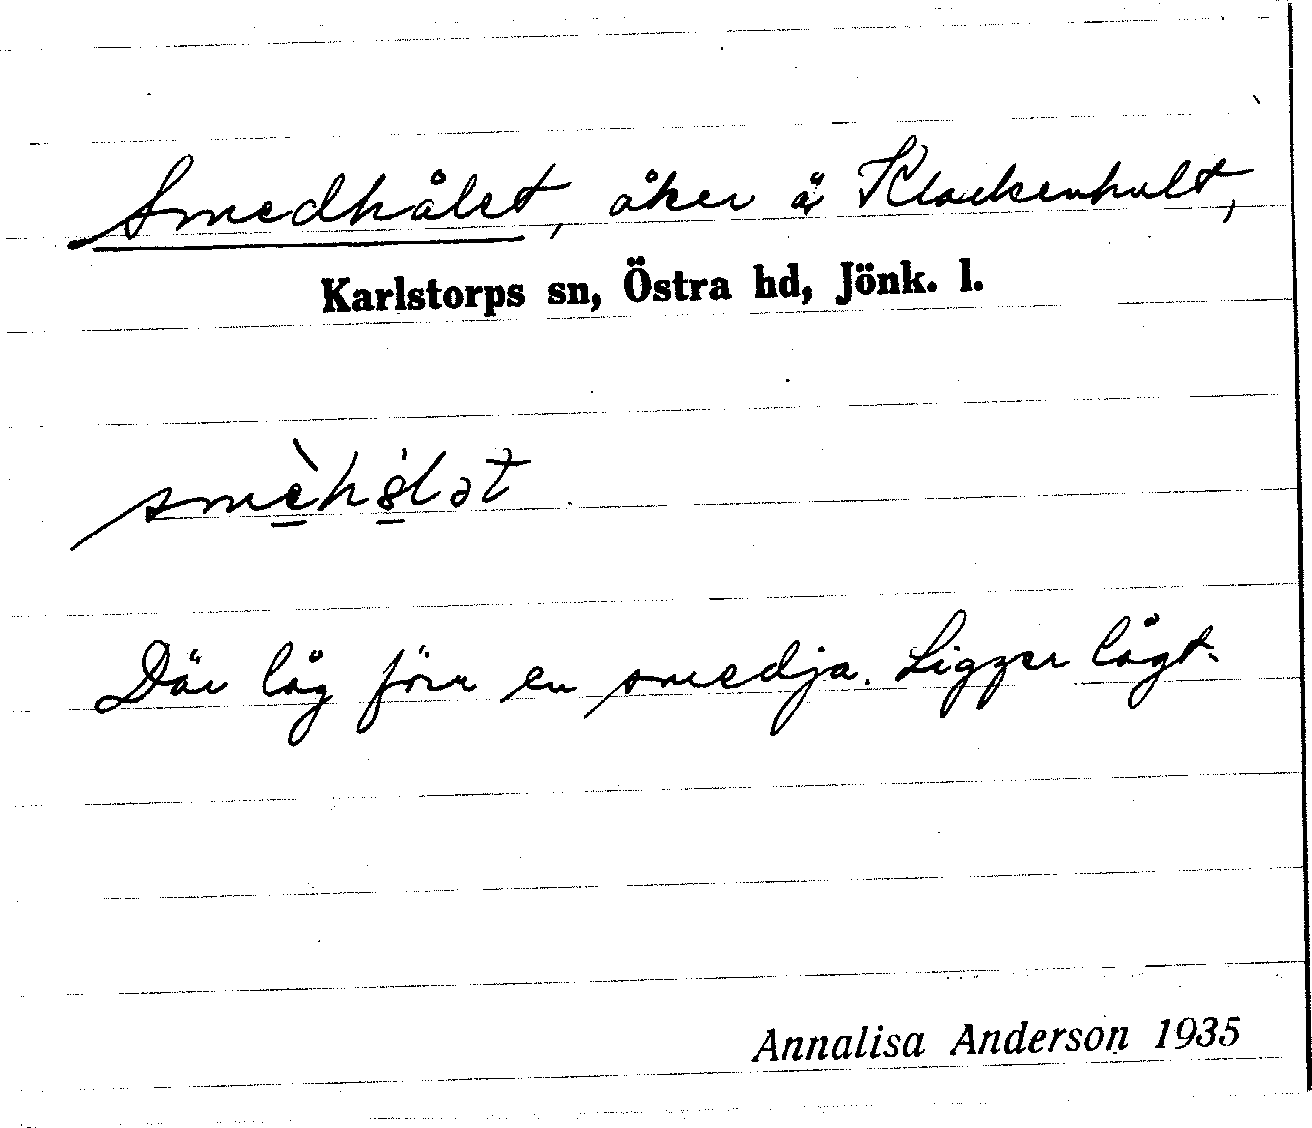 Smedhålet, åker å Klackenhult,
Karlstorps sn, Östra hd, Jönk. l.
Där låg förr en smedja. Ligger lågt.
Annalisa Anderson 1935